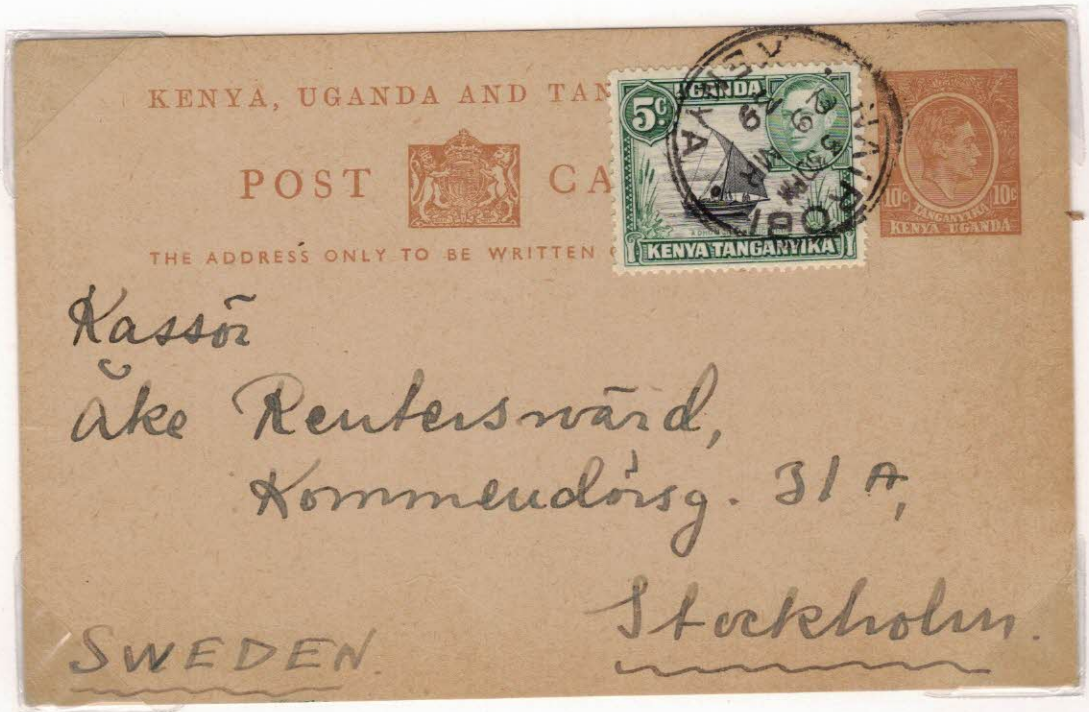 KENYA, UGANDA AND TAN
POST CA
THE ADDRESS ONLY TO BE WRITTEN
5c
UGANDA
KENYA TANGANYIKA
NAIROBI
KENYA
MR
10c 10c
TANGANYIKA
KENYA UGANDA
Kassör
Åke Reuterswärd,
Kommendörsg. 31 A,
Stockholm.
SWEDEN.